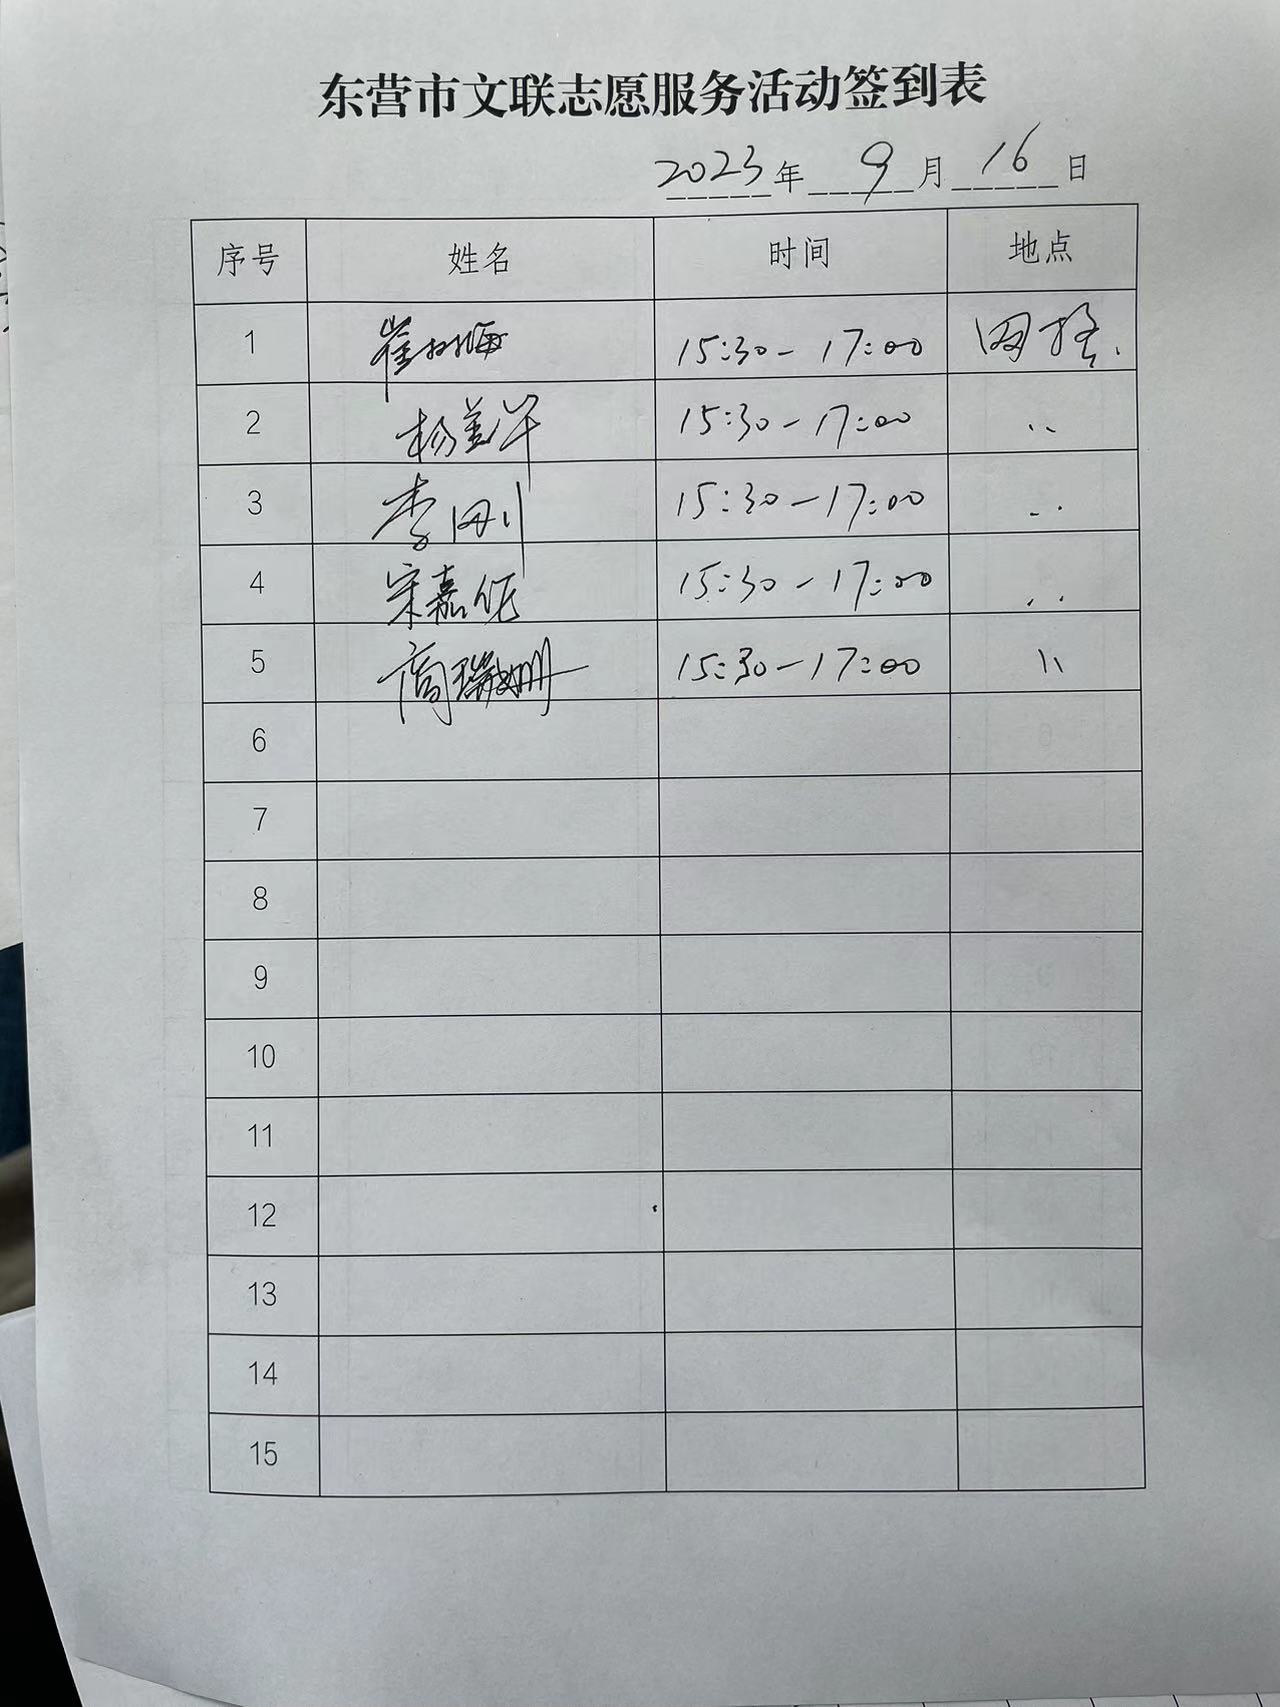 东营市文联志愿服务活动签到表
2023年 9月 16日
序号 姓名 时间 地点
1 崔 15:30-17:00 网格
2 杨美洋 15:30-17:00 〃
3 李刚 15:30-17:00 〃
4 宋嘉 15:30-17:00 〃
5 商瑞姗 15:30-17:00 〃
6
7
8
9
10
11
12
13
14
15